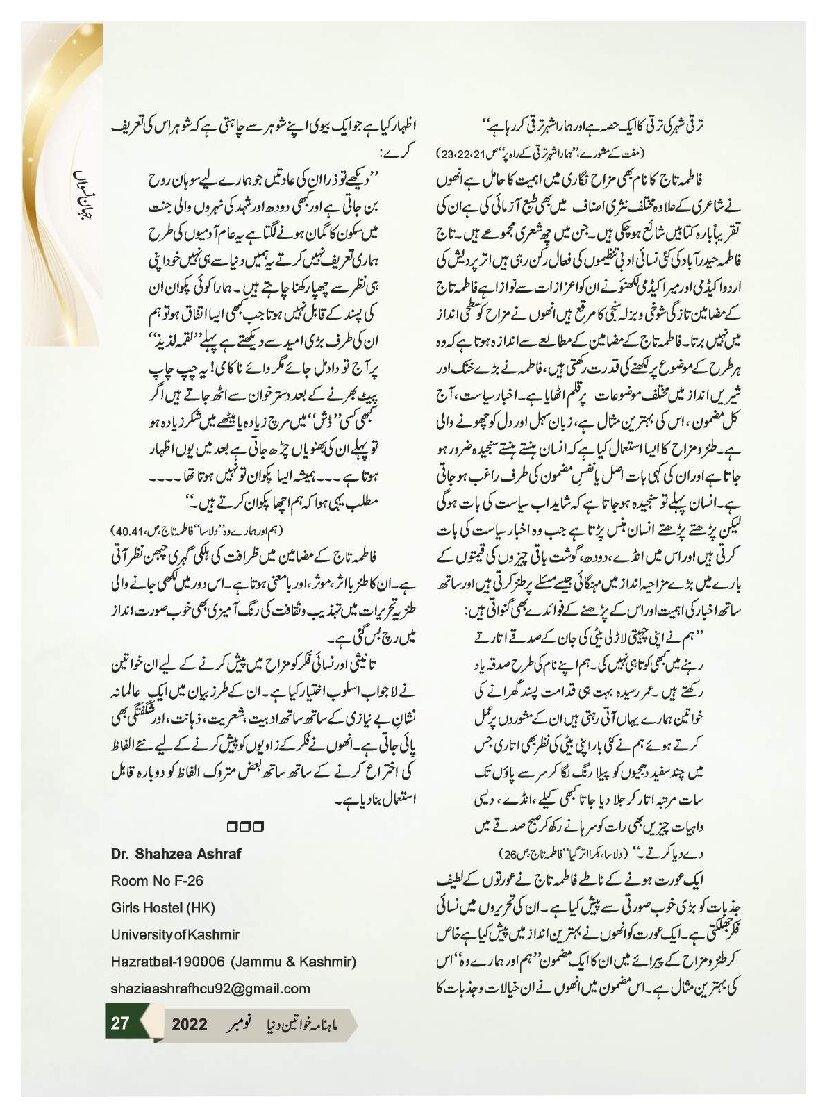 جہان نسواں
ترقی شہر کی ترقی کا ایک حصہ ہے اور ہمارا شہر ترقی کر رہا ہے‘‘
(مفت کے مشورے،’’ہمارا شہر ترقی کے راہ پر‘‘ ص 23،22،21)
فاطمہ تاج کا نام بھی مزاح نگاری میں اہمیت کا حامل ہے انھوں
نے شاعری کے علاوہ مختلف نثری اصناف میں بھی طبع آزمائی کی ہے ان کی
تقریباً بارہ کتابیں شائع ہوچکی ہیں۔ جن میں چھ شعری مجموعے ہیں۔ تاج
فاطمہ حیدرآباد کی کئی نسائی ادبی تنظیموں کی فعال رکن رہی ہیں اتر پردیش کی
اردو اکیڈمی اور میرا کیڈمی لکھنؤ نے ان کو اعزازات سے نوازا ہے فاطمہ تاج
کے مضامین تازگی شوخی و بزلہ سنجی کا مرقع ہیں انھوں نے مزاح کو سطحی انداز
میں نہیں برتا۔ فاطمہ تاج کے مضامین کے مطالعے سے اندازہ ہوتا ہے کہ وہ
ہر طرح کے موضوع پر لکھنے کی قدرت رکھتی ہیں، فاطمہ نے بڑے خنک اور
شیریں انداز میں مختلف موضوعات پر قلم اٹھایا ہے۔ اخبار سیاست، آج
کل مضمون، اس کی بہترین مثال ہے، زبان سہل اور دل کو چھونے والی
ہے۔ طنز و مزاح کا ایسا استعمال کیا ہے کہ انسان ہنستے ہنستے سنجیدہ ضرور ہو
جاتا ہے اور ان کی کہی بات اصل یا نفس مضمون کی طرف راغب ہو جاتی
ہے۔ انسان پہلے تو سنجیدہ ہو جاتا ہے کہ شاید اب سیاست کی بات ہوگی
لیکن پڑھتے پڑھتے انسان ہنس پڑتا ہے جب وہ اخبار سیاست کی بات
کرتی ہیں اور اس میں انڈے، دودھ، گوشت باقی چیزوں کی قیمتوں کے
بارے میں بڑے مزاحیہ انداز میں مہنگائی جیسے مسئلے پر طنز کرتی ہیں اور ساتھ
ساتھ اخبار کی اہمیت اور اس کے پڑھنے کے فوائدے بھی گنواتی ہیں:
’’ہم نے اپنی چہیتی لاڑلی بیٹی کی جان کے صدقے اتارتے
رہنے میں کبھی کوتاہی نہیں کی۔ ہم اپنے نام کی طرح صدقہ یاد
رکھتے ہیں۔ عمر رسیدہ بہت ہی قدامت پسند گھرانے کی
خواتین ہمارے یہاں آتی رہتی ہیں ان کے مشوردوں پر عمل
کرتے ہوئے ہم نے کئی بار اپنی بیٹی کی نظر بھی اتاری جس
میں چند سفید دھجیوں کو پیلا رنگ لگا کر سر سے پاؤں تک
سات مرتبہ اتار کر جلا دیا جاتا کبھی کیلے، انڈے، دیسی
واہیات چیزیں بھی رات کو سرہانے رکھ کر صبح صدقے میں
دے دیا کرتے۔‘‘ (دلاسا، بکرا اتر گیا’’ فاطمہ تاج، ص26)
ایک عورت ہونے کے ناطے فاطمہ تاج نے عورتوں کے لطیف
جذبات کو بڑی خوب صورتی سے پیش کیا ہے۔ ان کی تحریروں میں نسائی
فکر جھلکتی ہے۔ ایک عورت کو انھوں نے بہترین انداز میں پیش کیا ہے خاص
کر طنز و مزاح کے پیرائے میں ان کا ایک مضمون ’’ہم اور ہمارے وہ‘‘ اس
کی بہترین مثال ہے۔ اس مضمون میں انھوں نے ان خیالات و جذبات کا
اظہار کیا ہے جو ایک بیوی اپنے شوہر سے چاہتی ہے کہ شوہر اس کی تعریف
کرے:
’’دیکھے تو ذرا ان کی عادتیں جو ہمارے لیے سوہان روح
بن جاتی ہے اور کبھی دودھ اور شہد کی نہروں والی جنت
میں سکون کا گمان ہونے لگتا ہے یہ عام آدمیوں کی طرح
ہماری تعریف نہیں کرتے یہ ہمیں دنیا سے ہی نہیں خود اپنی
ہی نظر سے چھپا رکھنا چاہتے ہیں۔ ہمارا کوئی پکوان ان
کی پسند کے قابل نہیں ہوتا جب کبھی ایسا اتفاق ہو تو ہم
ان کی طرف بڑی امید سے دیکھتے ہے پہلے ’’لقمہ لذیذ‘‘
پر آج تو داد مل جائے مگر وائے ناکامی! یہ چپ چاپ
پیٹ بھرنے کے بعد دسترخوان سے اٹھ جاتے ہیں اگر
کبھی کسی ’’ڈش‘‘ میں مرچ زیادہ یا میٹھے میں شکر زیادہ ہو
تو پہلے ان کی بھنویاں چڑھ جاتی ہے بعد میں یوں اظہار
ہوتا ہے ۔۔۔ ہمیشہ ایسا پکوان تو نہیں ہوتا تھا ۔۔۔۔
مطلب یہی ہوا کہ ہم اچھا پکوان کرتے ہیں۔‘‘
(ہم اور ہمارے وہ ’’دلاسا‘‘ فاطمہ تاج، ص،40.41)
فاطمہ تاج کے مضامین میں ظرافت کی ہلکی گہری چبھن نظر آتی
ہے۔ ان کا طنز با اثر، موثر، اور بامعنی ہوتا ہے۔ اس دور میں لکھی جانے والی
طنزیہ تحریرات میں تہذیب و ثقافت کی رنگ آمیزی بھی خوب صورت انداز
میں رچ بس گئی ہے۔
تانیثی اور نسائی فکر کو مزاح میں پیش کرنے کے لیے ان خواتین
نے لاجواب اسلوب اختیار کیا ہے۔ ان کے طرز بیان میں ایک عالمانہ
نشان بے نیازی کے ساتھ ساتھ ادبیت، شعریت، ذہانت، اور شگفتگی بھی
پائی جاتی ہے۔ انھوں نے فکر کے زاویوں کو پیش کرنے کے لیے نئے الفاظ
کی اختراع کرنے کے ساتھ ساتھ بعض متروک الفاظ کو دوبارہ قابل
استعمال بنا دیا ہے۔
□□□
Dr. Shahzea Ashraf
Room No F-26
Girls Hostel (HK)
University of Kashmir
Hazratbal-190006 (Jammu & Kashmir)
shaziaashrafhcu92@gmail.com
27 ماہنامہ خواتین دنیا نومبر 2022